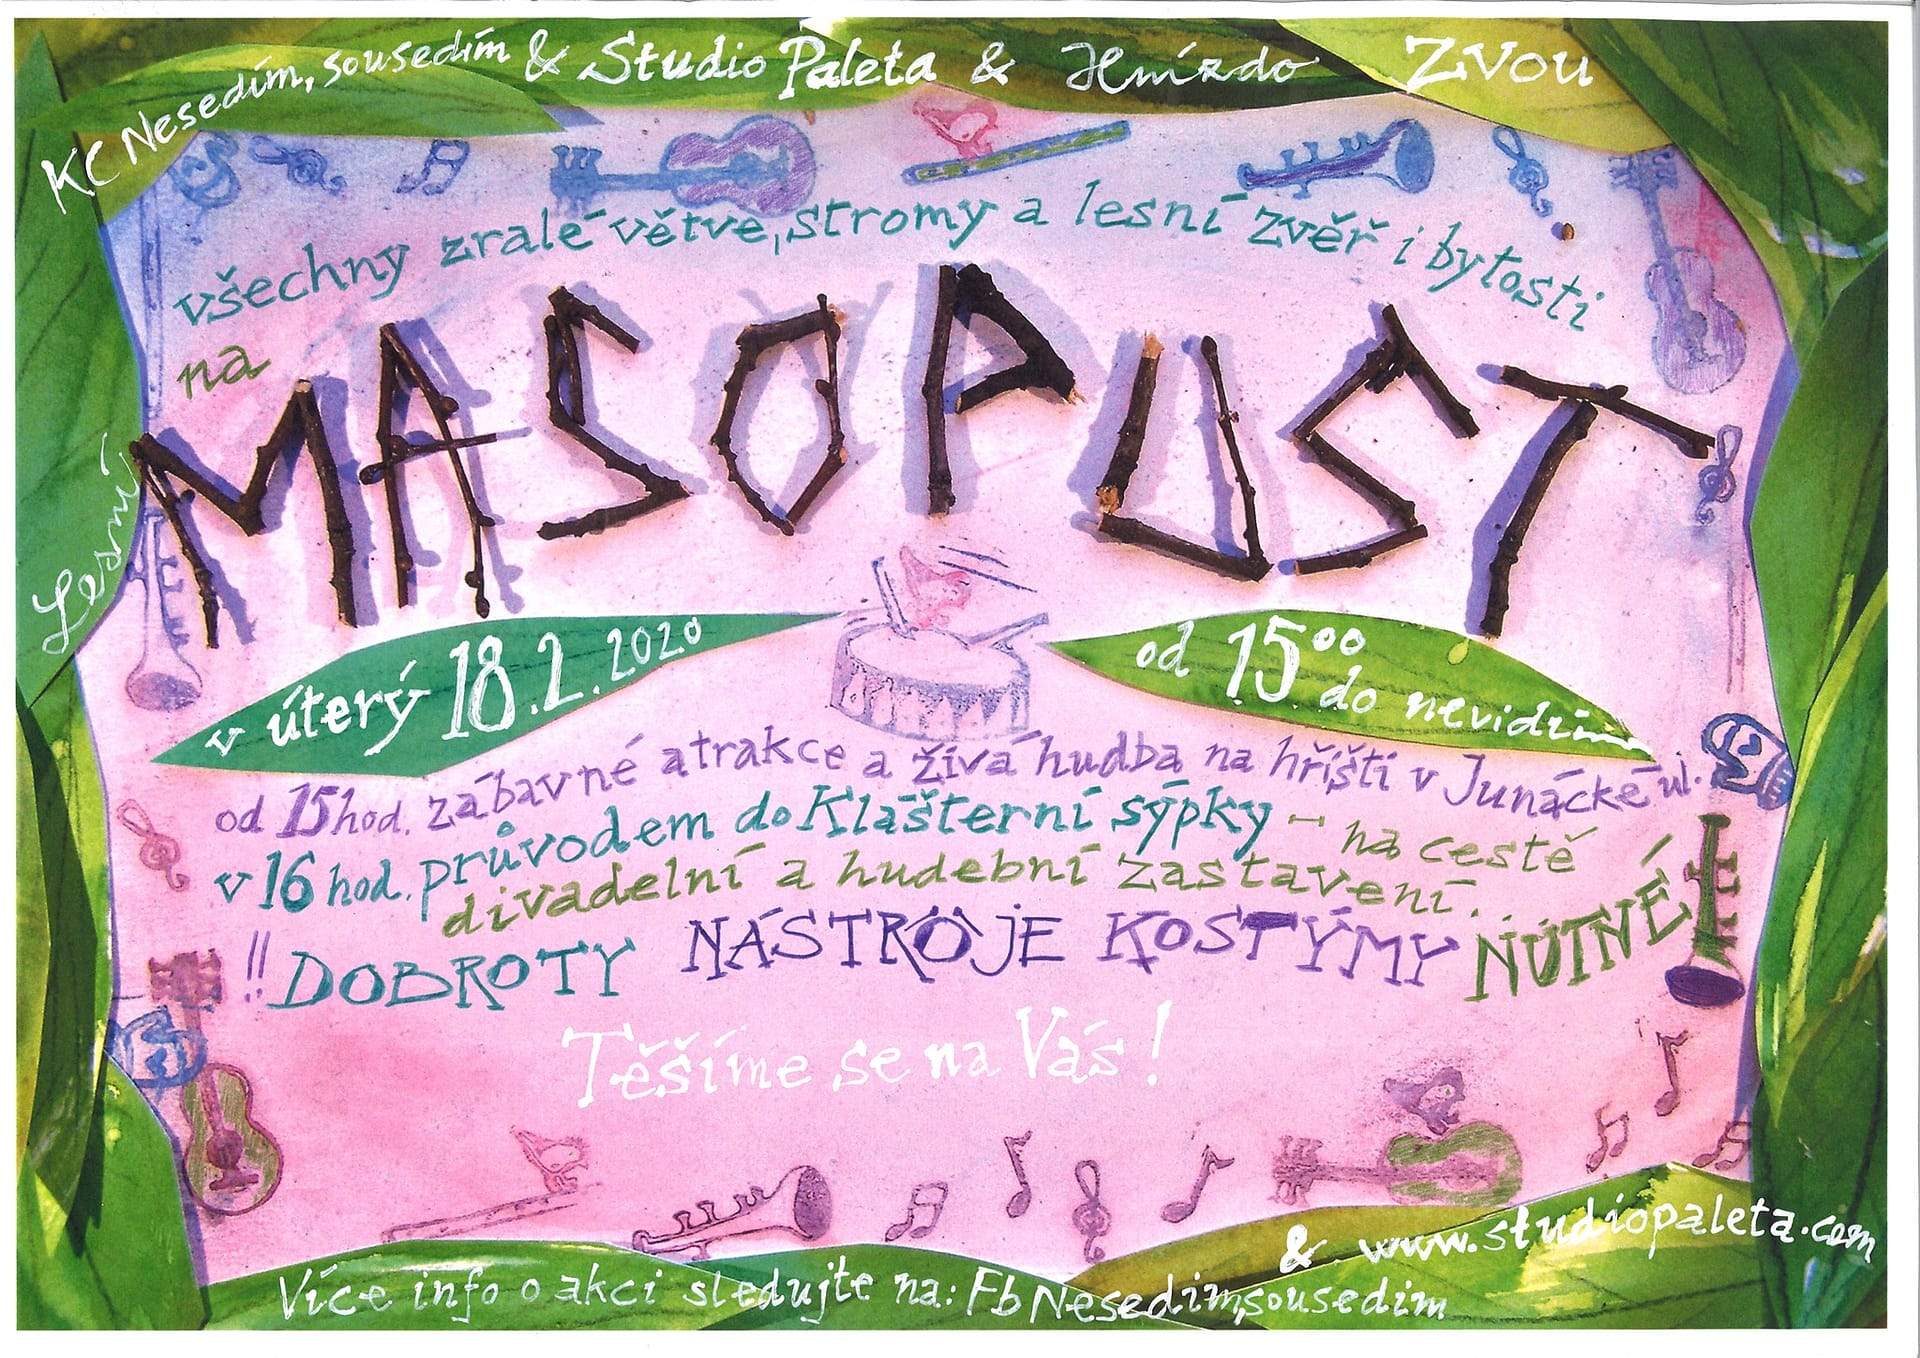 KC Nesedím, sousedím & Studio Paleta & Hnízdo ZVOU
všechny zralé větve, stromy a lesní zvěř i bytosti
na
Lesní MASOPUST
v úterý 18.2.2020
od 15⁰⁰ do nevidim
od 15 hod. zábavné atrakce a živá hudba na hřišti v Junácké ul.
v 16 hod. průvodem do Klášterní sýpky - na cestě
divadelní a hudební zastavení..
!! DOBROTY NÁSTROJE KOSTÝMY NUTNÉ
Těšíme se na Vás!
& www.studiopaleta.com
Více info o akci sledujte na: Fb Nesedim,sousedim